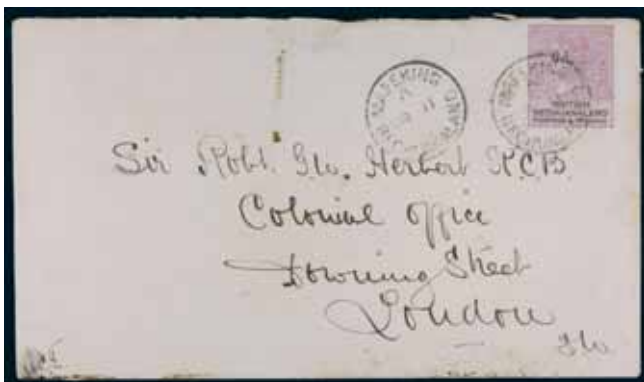 MAFEKING
6d.
BRITISH
BECHUANALAND
POSTAGE & REVENUE
Sir Robt. G.W. Herbert K.C.B.
Colonial Office
Downing Street
London
S.W.